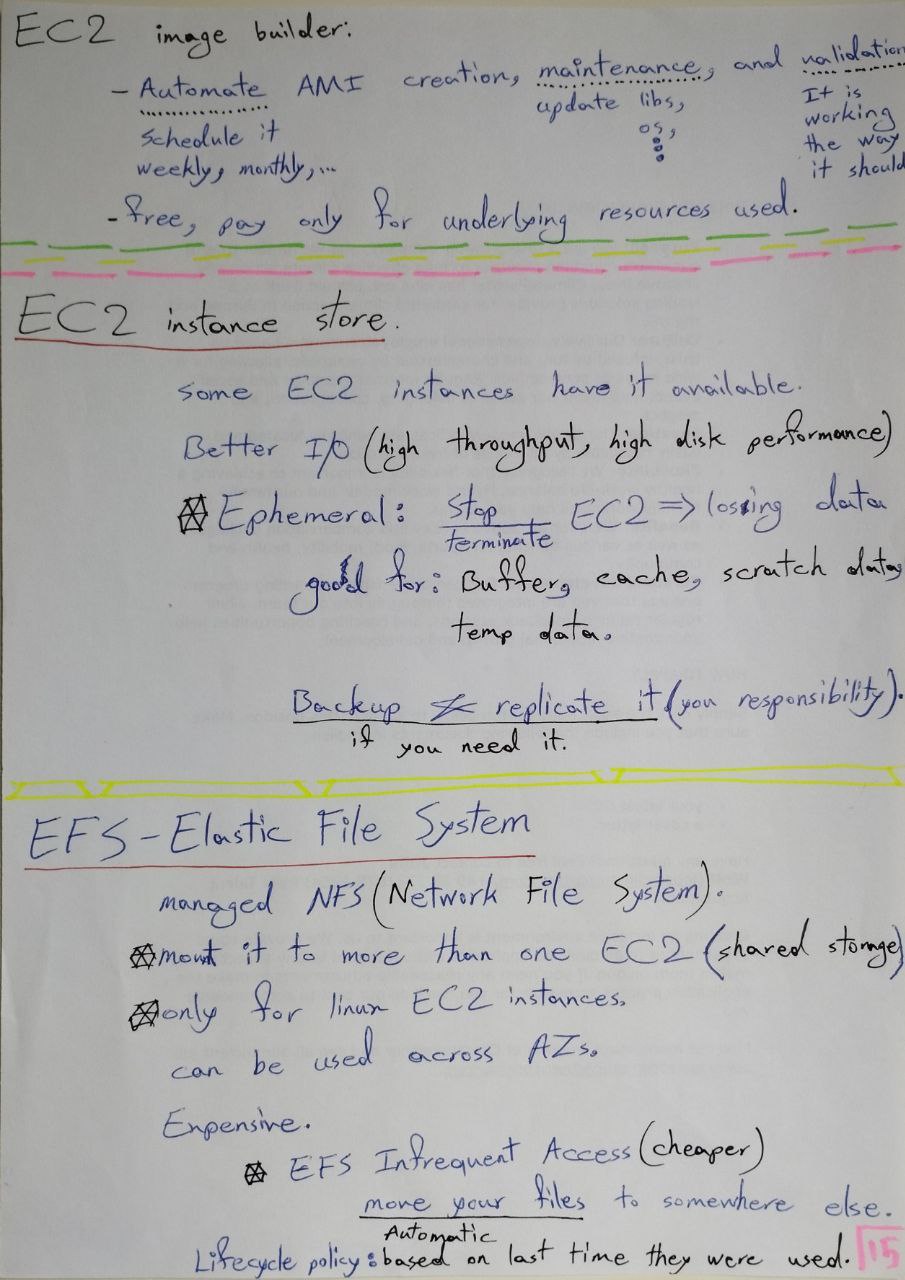 EC2 image builder:
- Automate AMI creation, maintenance, and validation
schedule it
weekly, monthly, ...
update libs,
os,
It is
working
the way
it should
- free, pay only for underlying resources used.
EC2 instance store.
some EC2 instances have it available.
Better I/O (high throughput, high disk performance)
Ephemeral: stop EC2 => lossing data
terminate
good for: Buffer, cache, scratch data,
temp data.
Backup & replicate it (you responsibility).
if you need it.
EFS - Elastic File System
managed NFS (Network File System).
mount it to more than one EC2 (shared storage)
only for linux EC2 instances.
can be used across AZs.
Expensive.
EFS Infrequent Access (cheaper)
move your files to somewhere else.
Automatic
Lifecycle policy: based on last time they were used.
15